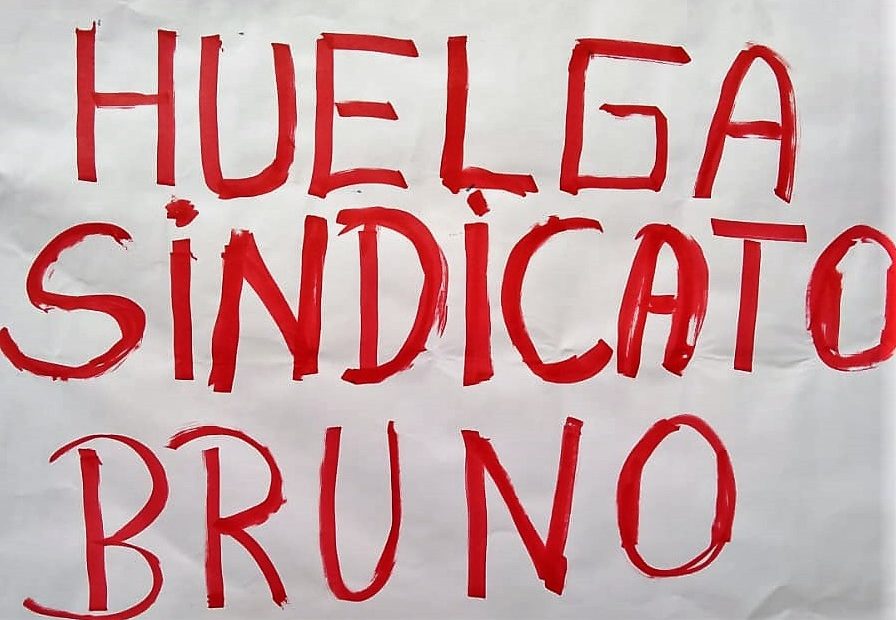 HUELGA
SiNDiCATO
BRUNO